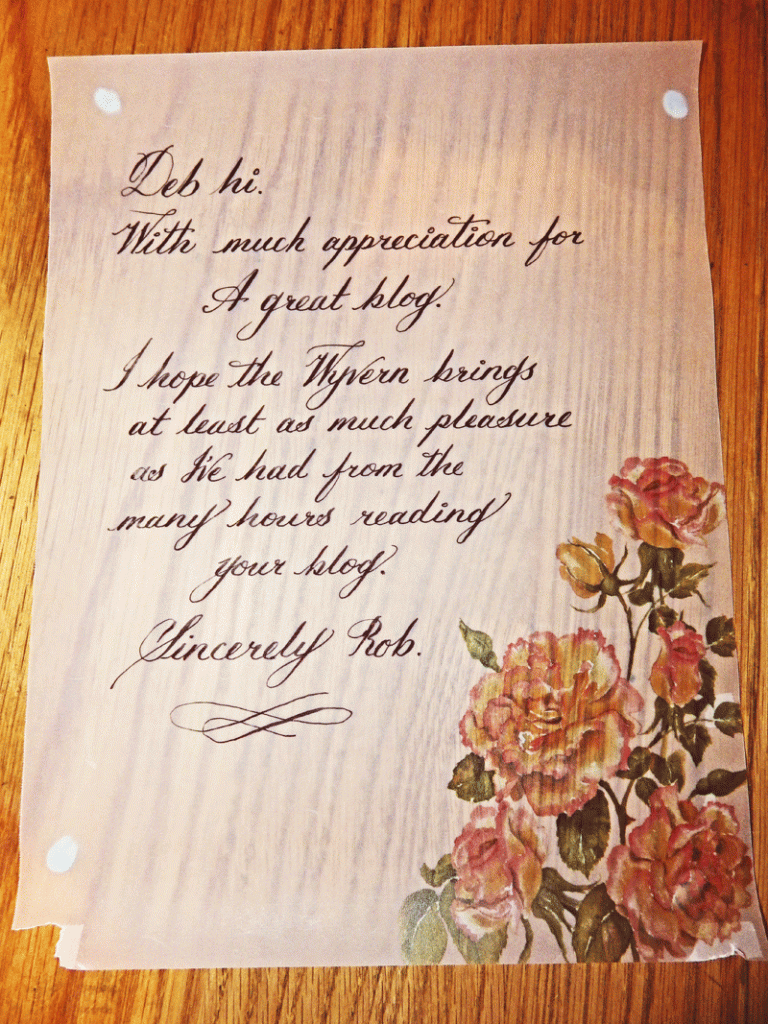 Deb hi.
With much appreciation for
A great blog.
I hope the Wyvern brings
at least as much pleasure
as I've had from the
many hours reading
your blog.
Sincerely Rob.